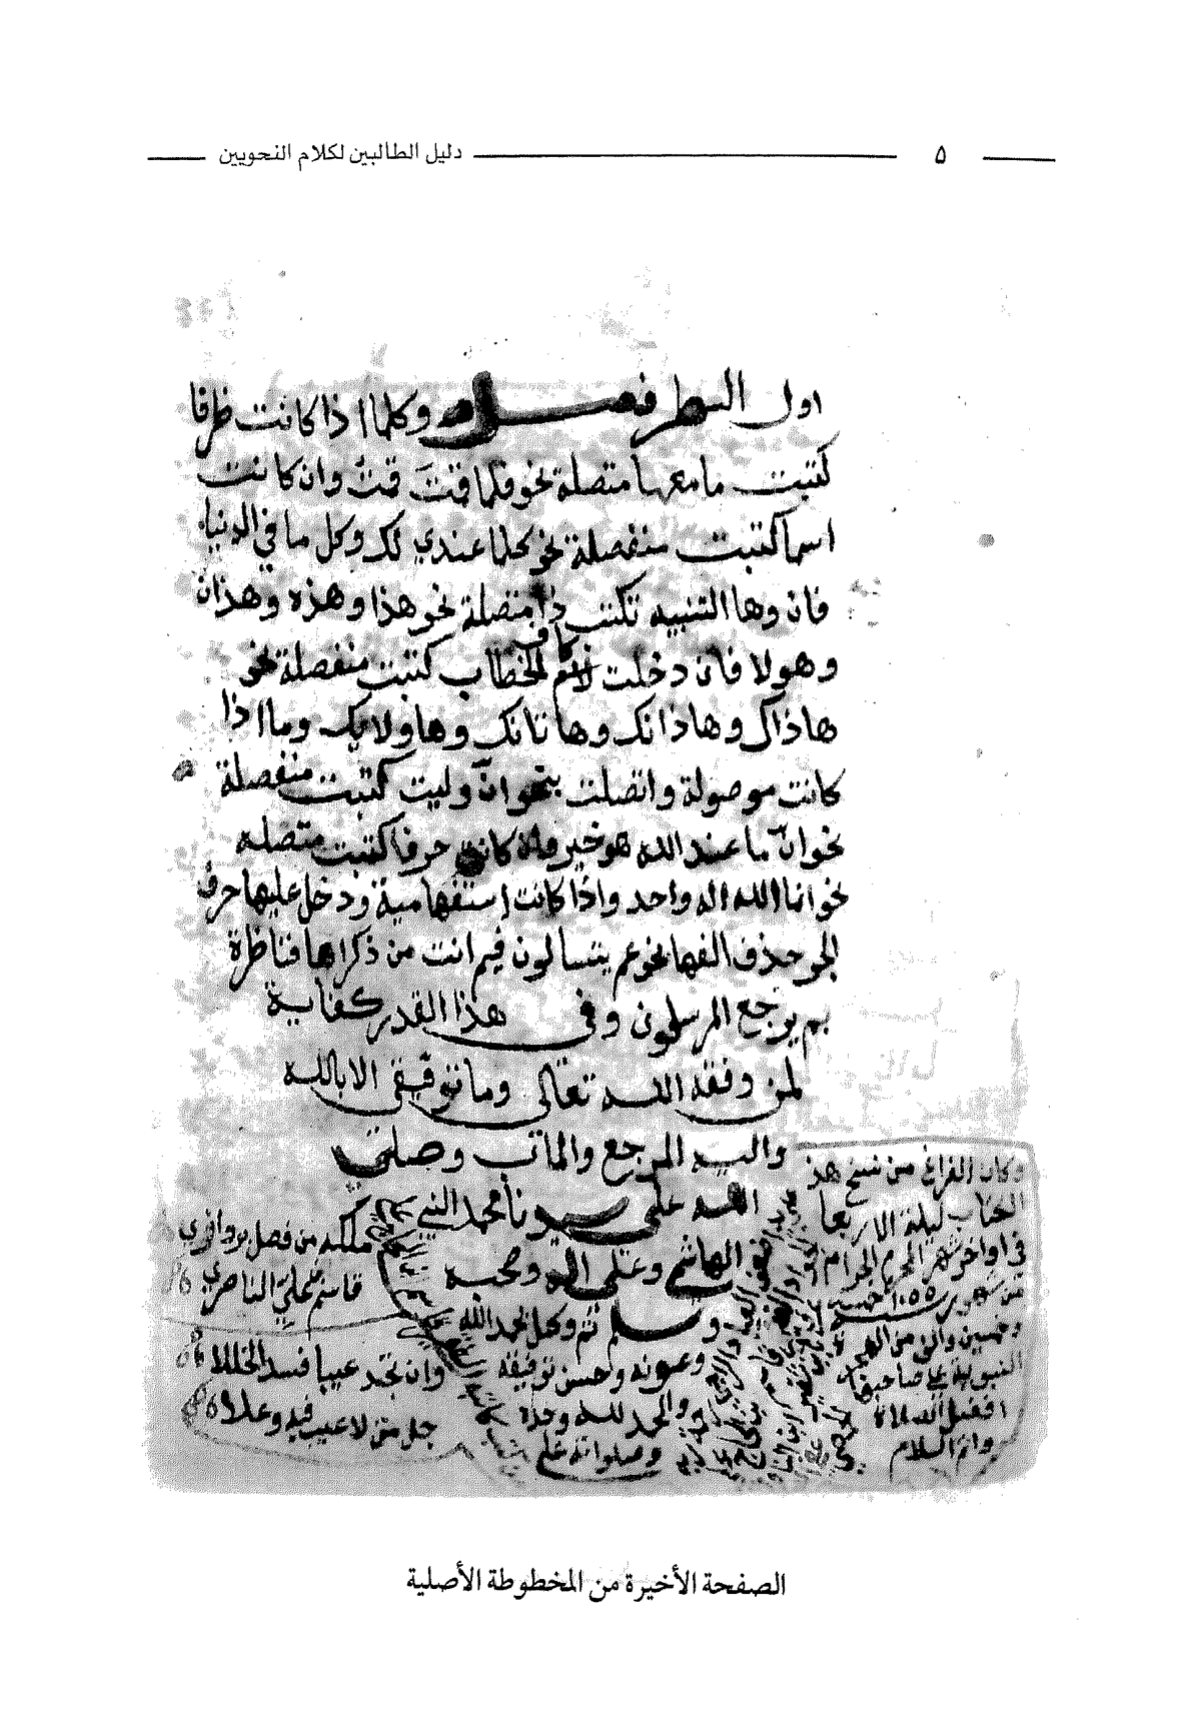 دليل الطالبين لكلام النحويين
٥
اول السطر فصل وكلما اذا كانت ظرفا
كتبت ما معها متصلة نحو فكلما قمتَ قمتُ وان كانت
اسما كتبت منفصلة نحو كلما عندي لك وكل ما في الدنيا
فان وها التنبيه تكتب ذا متصلة نحو هذا وهذه وهذان
وهولا فان دخلت كاف الخطاب كتبت منفصلة نحو
هاذاك وهاذانك وهاتانك وهاولايك وما اذا
كانت موصولة واتصلت بنحو انّ وليت كتبت منفصلة
نحو انّ ما عند الله هو خير وان كانت حرفا كتبت متصله
نحو انما الله اله واحد واذا كانت استفهامية ودخل عليها حرف
الجر حذف الفها نحو عم يتسالون فيم انت من ذكراها فناظرة
بم يرجع المرسلون وفي هذا القدر كفاية
لمن وفقه الله تعالى وما توفيقي الا بالله
واليه المرجع والماب وصلى
الله على سيدنا محمد النبي
الهاشمي وعلى اله وصحبه
وسلم تم وكمل بحمد الله
وعونه وحسن توفيقه
والحمد لله وحده
وصلواته على
وكان الفراغ من نسخ هذ
الكتاب ليلة الاربعا
في اواخر شهر المحرم الحرام
من شهور سنة ١٠٥٥ خمسة
وخمسين والف من الهجرة
النبوية على صاحبها
افضل الصلاة
واتم السلام
ملكه من فضل
قاسم علي الناصري
وان تجد عيبا فسد الخللا
جل من لا عيب فيه وعلا
الصفحة الأخيرة من المخطوطة الأصلية